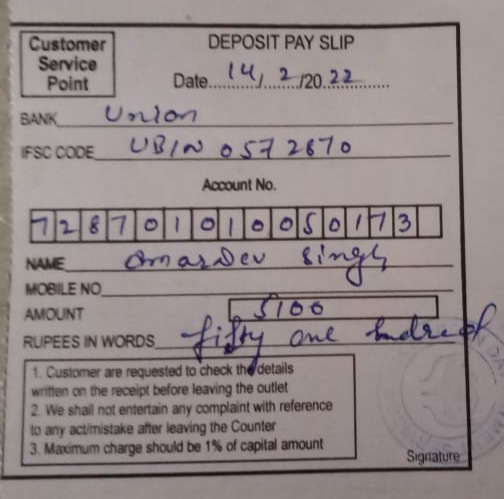 Customer Service Point
DEPOSIT PAY SLIP
Date 14/2/2022
BANK Union
IFSC CODE UBIN 0572870
Account No.
728701010050173
NAME Omar Dev Singh
MOBILE NO
AMOUNT 5100
RUPEES IN WORDS fifty one hndred
1. Customer are requested to check the details
written on the receipt before leaving the outlet
2. We shall not entertain any complaint with reference
to any act/mistake after leaving the Counter
3. Maximum charge should be 1% of capital amount
Signature